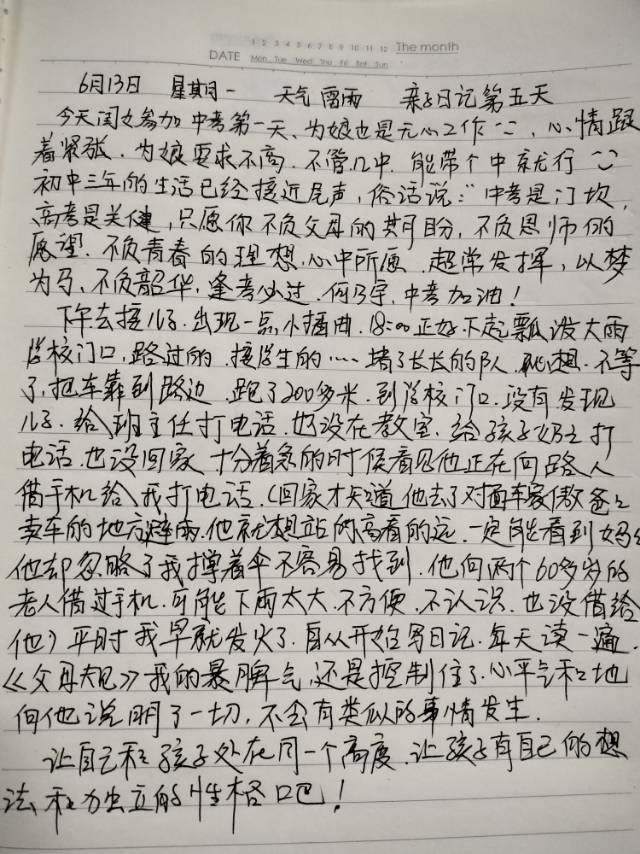 1 2 3 4 5 6 7 8 9 10 11 12 The month
DATE Mon Tue Wed Thu Fri Sat Sun
6月13日 星期一 天气 雷雨 亲子日记第五天
今天闺女参加中考第一天、为娘也是无心工作、心情跟
着紧张、为娘要求不高、不管几中、能带个中就行
初中三年的生活已经接近尾声,俗话说:"中考是门坎,
高考是关健,只愿你不负父母的期盼,不负恩师的
愿望、不负青春的理想、心中所愿、超常发挥,以梦
为马、不负韶华,逢考必过、何乃宇、中考加油!
下午去接儿子、出现一点小插曲、18:00正好下起瓢泼大雨
学校门口,路过的、接学生的……堵了长长的队、我想、不等
了,把车靠到路边、跑了200多米、到学校门口、没有发现
儿子、给班主任打电话、也没在教室、给孩子奶奶打
电话、也没回家、十分着急的时候看见他正在向路人
借手机给我打电话、(回家才知道他去了对面
卖车的地方避雨、他就想站的高看的远、一定能看到妈妈
他却忽略了我撑着伞不容易找到、他向两个60多岁的
老人借过手机、可能下雨太大、不方便、不认识、也没借给
他)平时我早就发火了、自从开始写日记、每天读一遍、
《父母规》我的暴脾气,还是控制住了、心平气和地
向他说明了一切,不会有类似的事情发生、
让自己和孩子处在同一个高度、让孩子有自己的想
法和独立的性格吧!